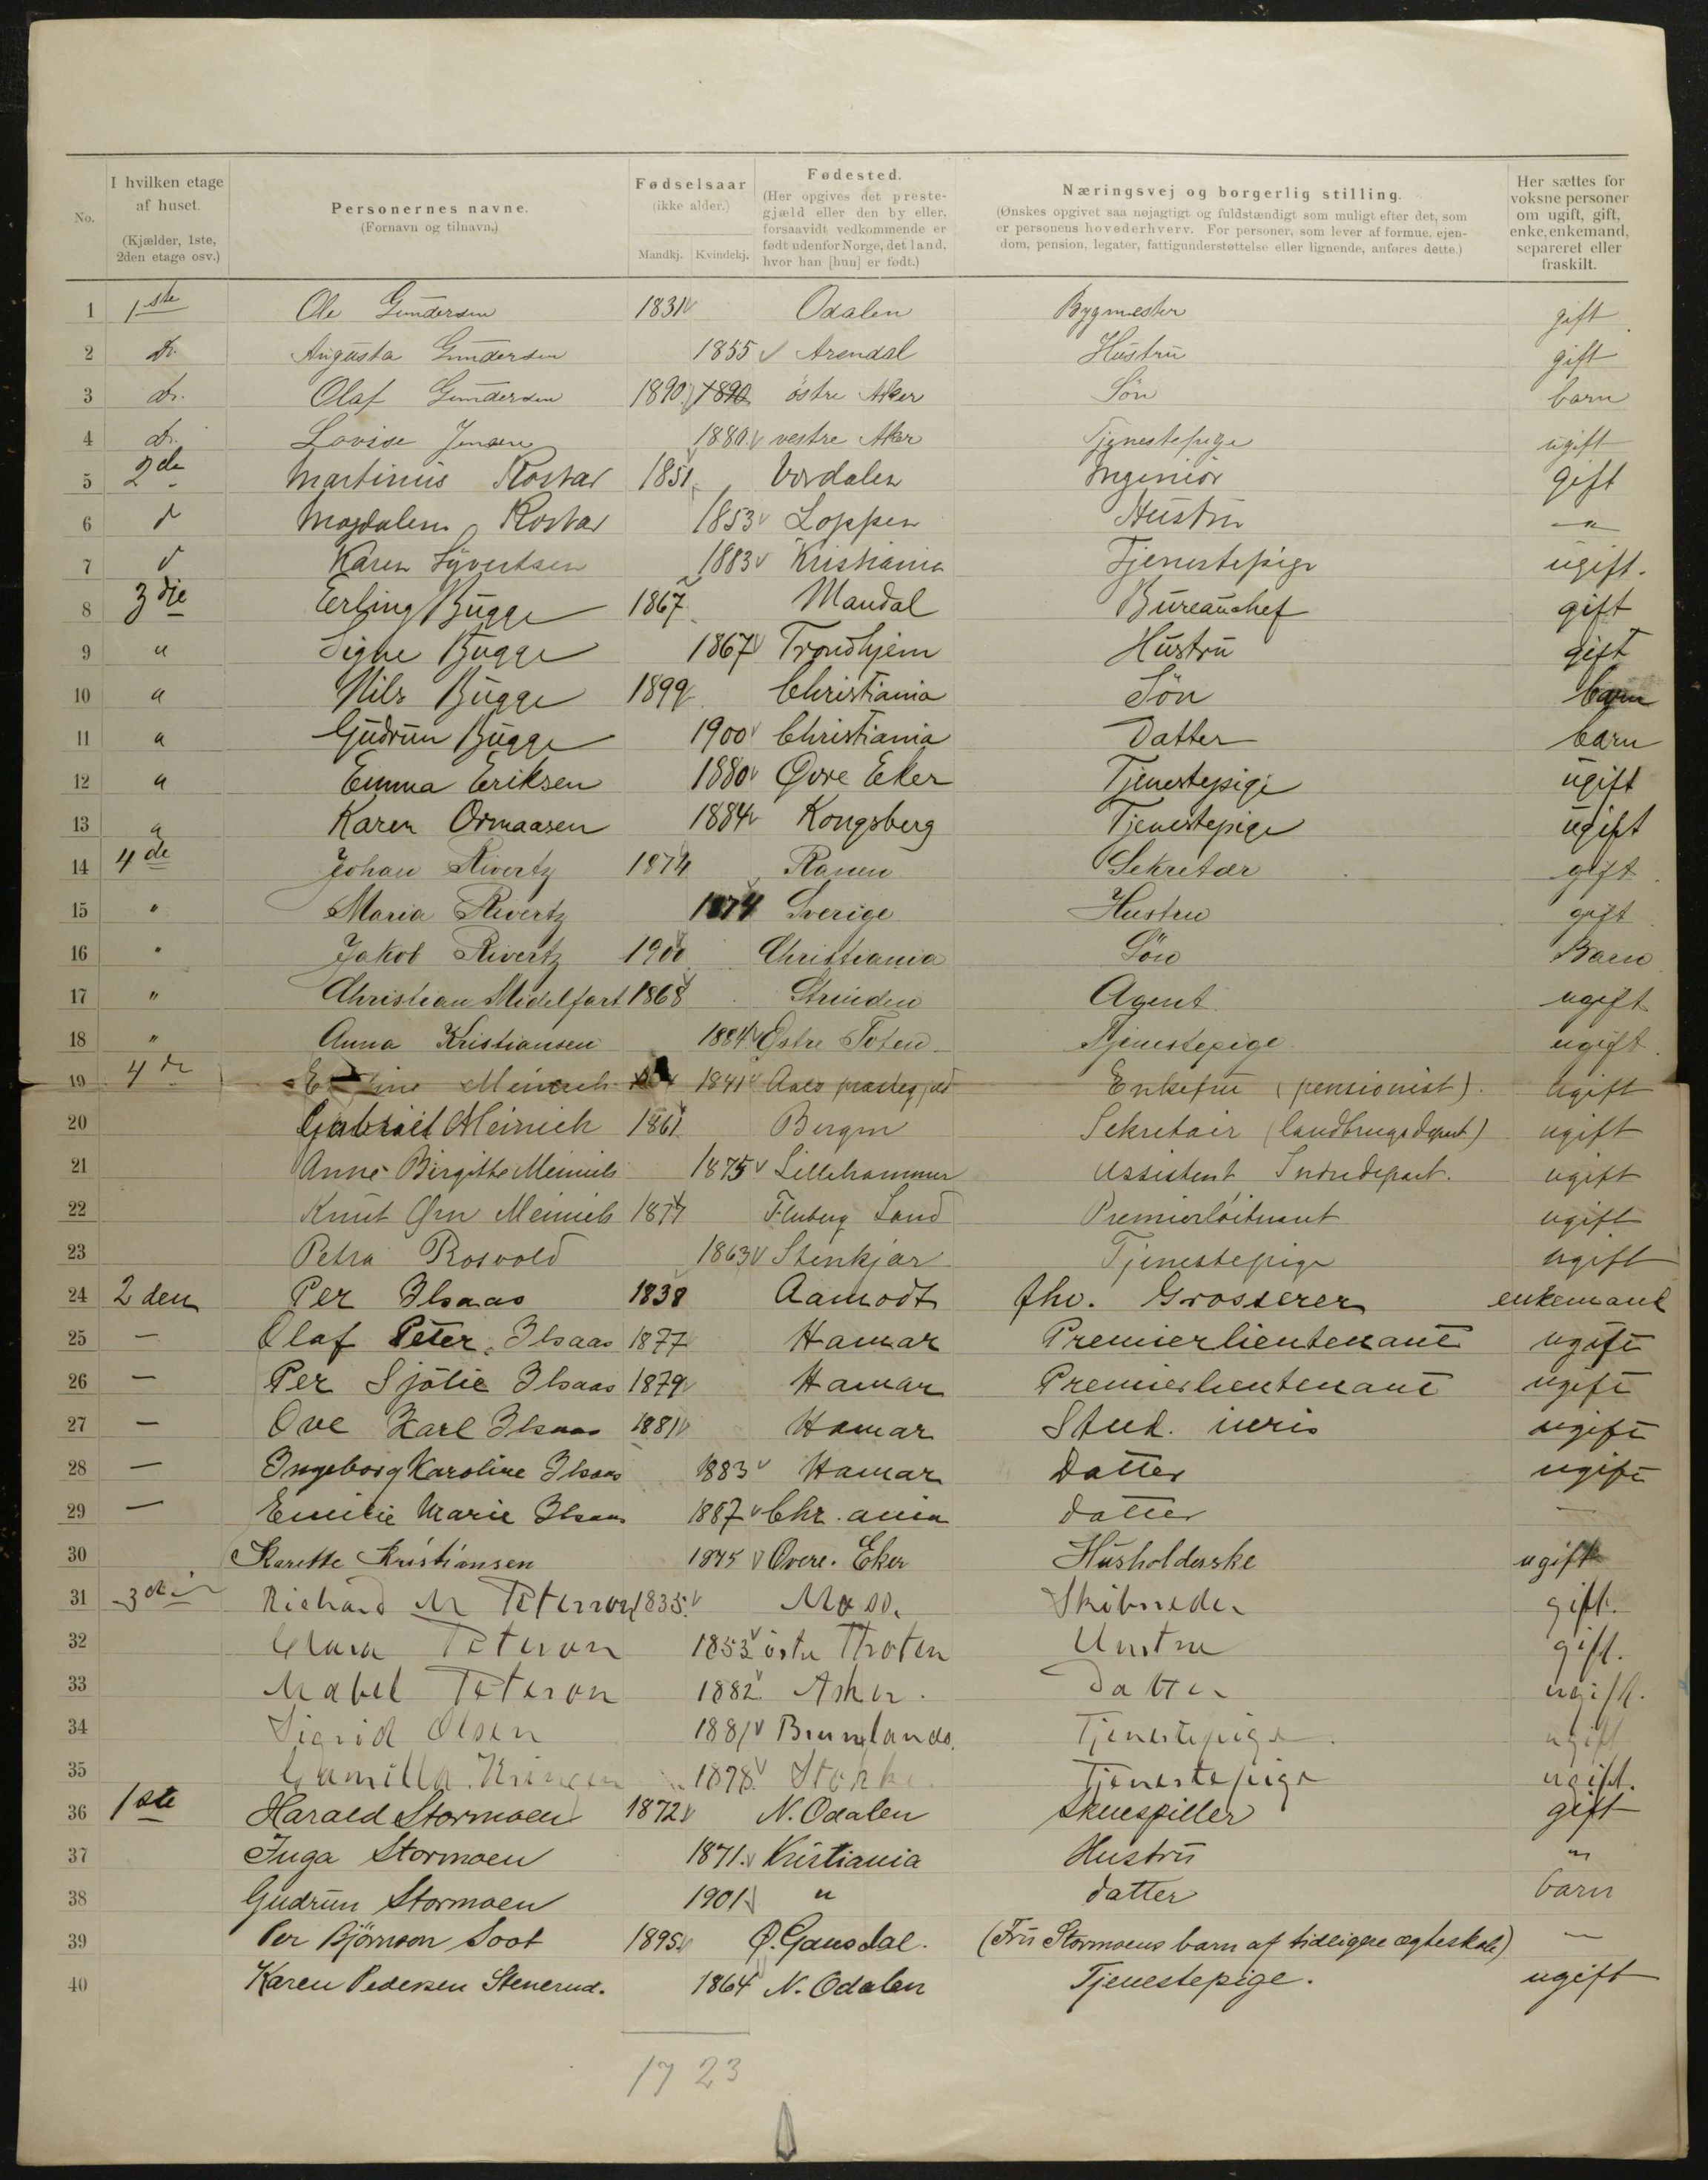 No. I hvilken etage af huset. (Kjælder, 1ste, 2den etage osv.) Personernes navne. (Fornavn og tilnavn.) Fødselsaar (ikke alder.) Mandkj. Kvindekj. Fødested. (Her opgives det prestegjæld eller den by eller, forsaavidt vedkommende er født udenfor Norge, det land, hvor han [hun] er født.) Næringsvej og borgerlig stilling. (Ønskes opgivet saa nøjagtigt og fuldstændigt som muligt efter det, som er personens hovederhverv. For personer, som lever af formue, ejendom, pension, legater, fattigunderstøttelse eller lignende, anføres dette.) Her sættes for voksne personer om ugift, gift, enke, enkemand, separeret eller fraskilt.
1 1ste Ole Gundersen 1831 Odalen Bygmester gift
2 do. Augusta Gundersen 1855 Arendal Hustru gift
3 do. Olaf Gundersen 1890 1890 östre Aker Sön barn
4 do. Lovise Jensen 1880 vestre Aker Tjenestepige ugift
5 2de Martinius Rostad 1851 Værdalen Ingeniör gift
6 d Magdalene Rostad 1853 Loppen Hustru "
7 d Karen Syvertsen 1883 Kristiania Tjenestepige ugift.
8 3dje Erling Bugge 1867 Mandal Bureauchef gift
9 " Signe Bugge 1867 Trondhjem Hustru gift
10 " Nils Bugge 1899 Christiania Sön barn
11 " Gudrun Bugge 1900 Christiania Datter barn
12 " Emma Eriksen 1880 Øvre Eker Tjenestepige ugift
13 " Karen Ormaasen 1884 Kongsberg Tjenestepige ugift
14 4de Johan Rivertz 1874 Ranen Sekretær gift
15 " Maria Rivertz 1874 Sverige Hustru gift
16 " Jakob Rivertz 1900 Christiania Sön Barn
17 " Christian Midelfart 1868 Strinden Agent ugift
18 " Anna Kristiansen 1884 Østre Toten Tjenestepige ugift
19 4de Meinich 1841 præstegjeld Enkefru (pensionist) ugift
20 Gabriel Meinich 1861 Bergen Sekretair (landbrugsdepart) ugift
21 Anne Birgitte Meinich 1875 Lillehammer Assistent Indredepart. ugift
22 Knut Ørn Meinich 1877 Fluberg Land Premierlöitnant ugift
23 Petra Rosvold 1863 Stenkjær Tjenestepige ugift
24 2den Per Ilsaas 1838 Aamodt fhv. Grosserer enkemand
25 — Olaf Peter Ilsaas 1877 Hamar Premierlieutenant ugift
26 — Per Sjölie Ilsaas 1879 Hamar Premierlieutenant ugift
27 — Ove Karl Ilsaas 1881 Hamar Stud. iuris ugift
28 — Ingeborg Karoline Ilsaas 1883 Hamar Datter ugift
29 — Emilie Marie Ilsaas 1887 Chr.ania datter —
30 Karette Kristiansen 1875 Øvere. Eker Husholderske ugift
31 3die Richard M Peterson 1835 Moss. Skibsreder gift.
32 Clara Peterson 1853 östre Thoten Hustru gift.
33 Mabel Peterson 1882 Asker. Datter ugift.
34 Sigrid Olsen 1881 Brunlands. Tjenestepige. ugift
35 Camilla 1878 Stokke. Tjenestepige ugift.
36 1ste Harald Stormoen 1872 N. Odalen Skuespiller gift
37 Inga Stormoen 1871. Kristiania Hustru "
38 Gudrun Stormoen 1901 " datter barn
39 Per Björnson Soot 1895 Ø. Gausdal. (Fru Stormoens barn af tidligere ægteskab) —
40 Karen Pedersen Stenerud. 1864 N. Odalen Tjenestepige. ugift
17 23